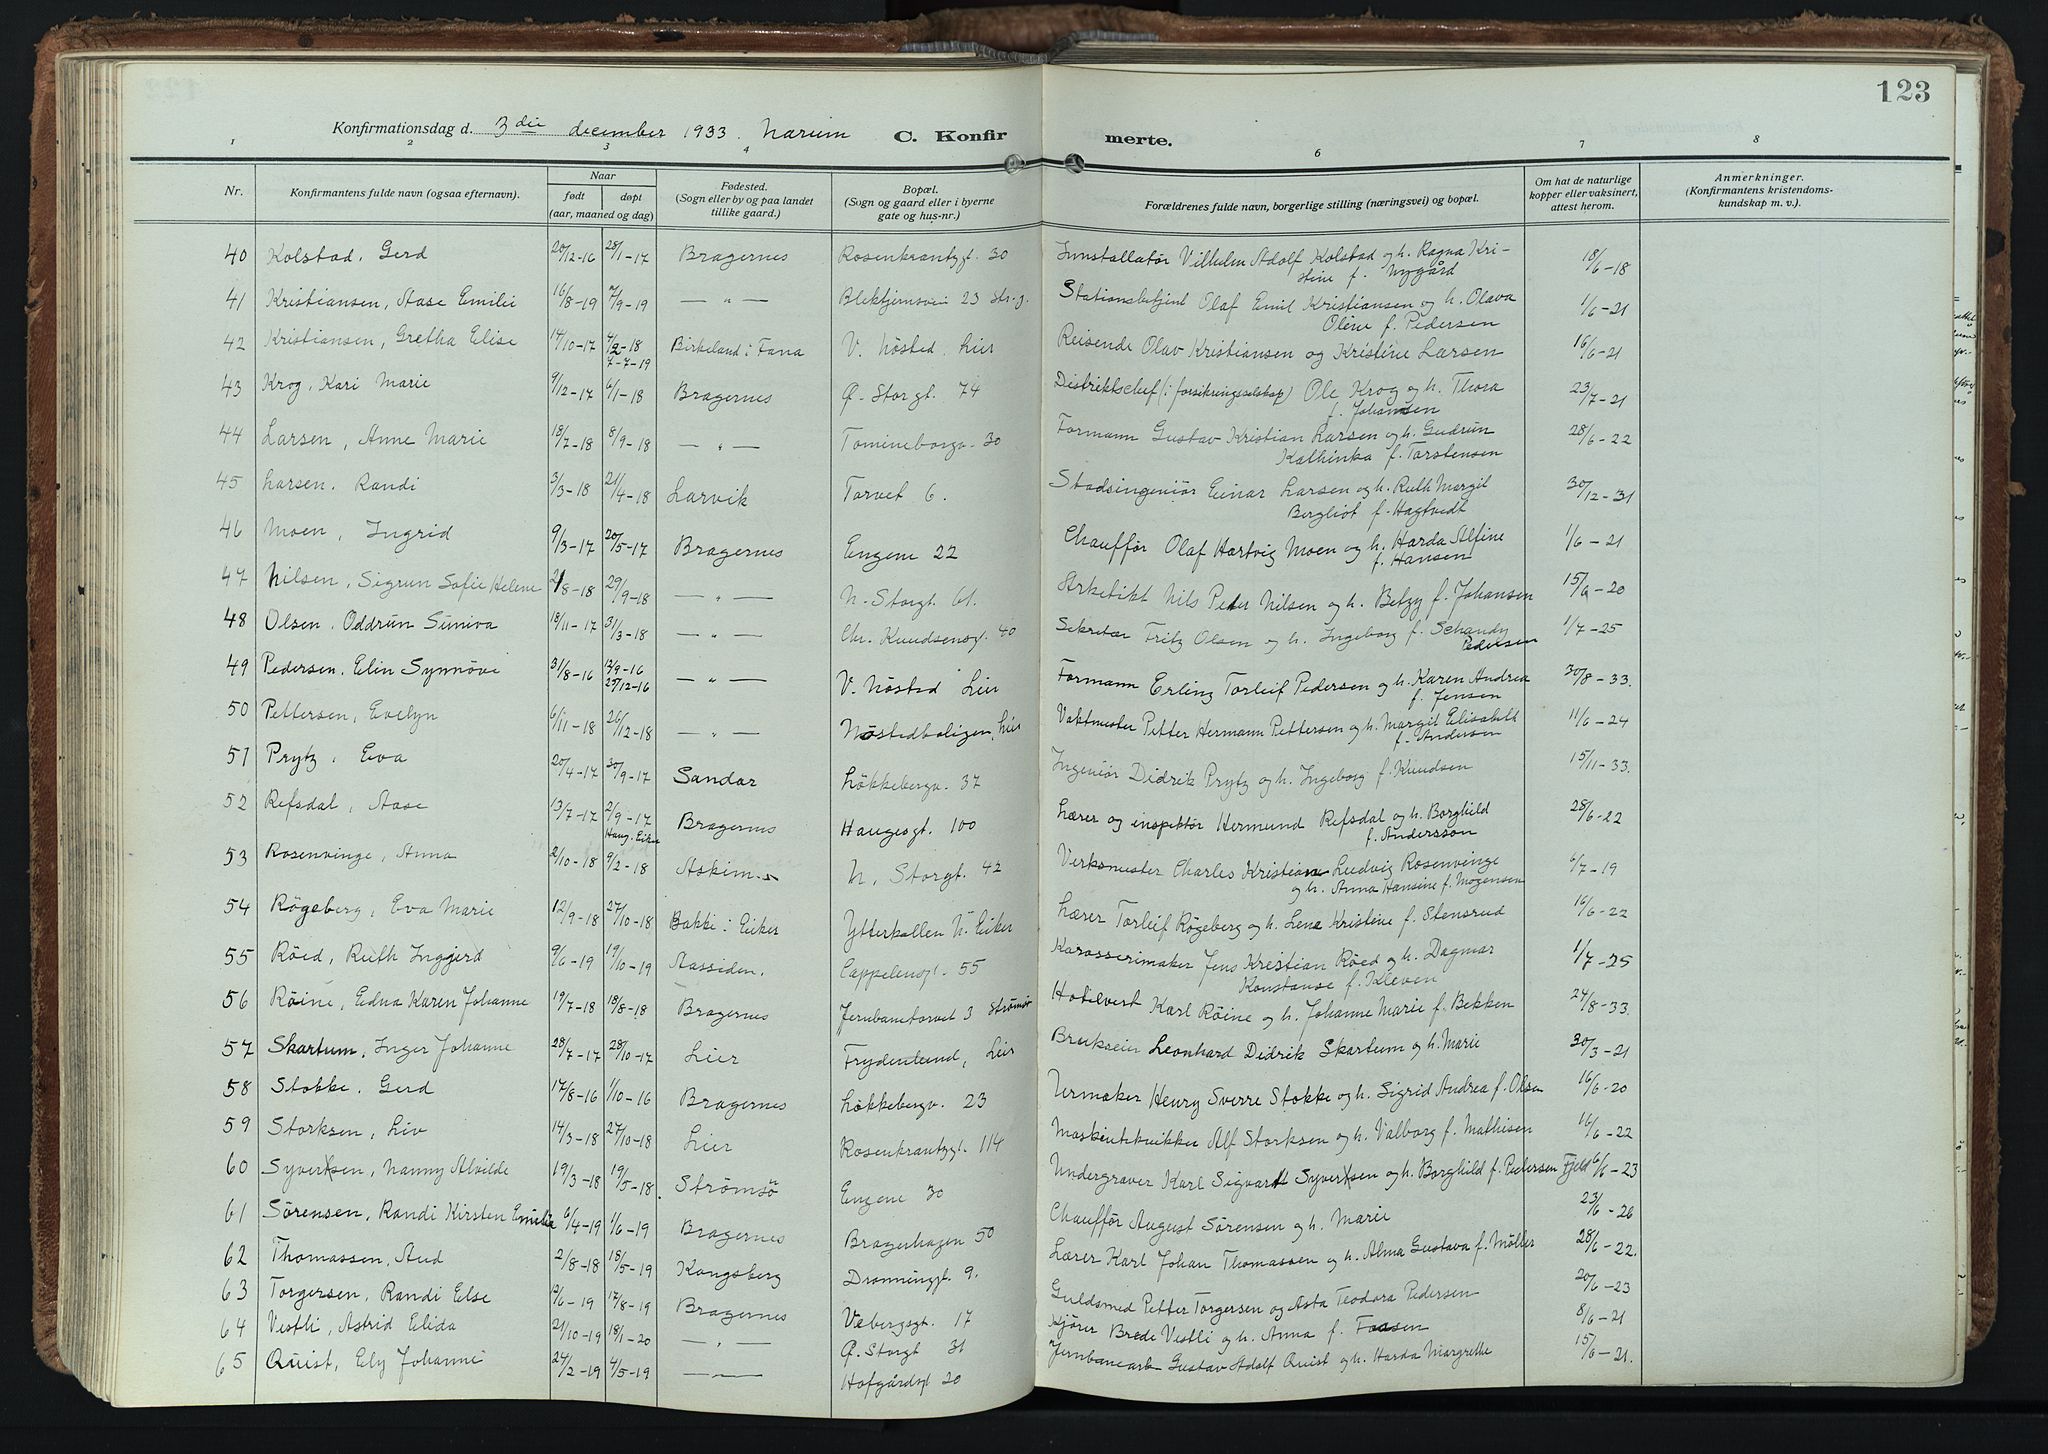 123
Konfirmationsdag d. 3die december 1933. Narum C. Konfirmerte.
1 2 3 4 6 7 8
Nr. Konfirmantens fulde navn (ogsaa efternavn). Naar født døpt (aar, maaned og dag) Fødested. (Sogn eller by og paa landet tillike gaard.) Bopæl. (Sogn og gaard eller i byerne gate og hus-nr.) Forældrenes fulde navn, borgerlige stilling (næringsvei) og bopæl. Om hat de naturlige kopper eller vaksinert, attest herom. Anmerkninger. (Konfirmantens kristendomskundskap m. v.).
40 Kolstad, Gerd 20/12-16 28/1-17 Bragernes Rosenkrantzgt. 30 Innstallatør Vilhelm Adolf Kolstad og h. Ragna Kri- 18/6-18
stine f. Nygård
41 Kristiansen, Aase Emilie 16/8-19 7/9-19 — " — Blektjernsvei 23 Str.g. Stationsbetjent Olaf Emil Kristiansen og h. Olava 1/6-21
Oline f. Pedersen
42 Kristiansen, Gretha Elise 14/10-17 4/2-18 Birkeland i Fana V. Nøsted. Lier Reisende Olav Kristiansen og Kristine Larsen 16/6-21
7-7-19
43 Krog, Kari Marie 9/12-17 6/1-18 Bragernes Ø. Storgt. 74 Distriktschef (i forsikringsselskap) Ole Krog og h. Thora 23/7-21
f. Johansen
44 Larsen, Anne Marie 18/7-18 8/9-18 — " — Tomineborgv. 30 Formann Gustav Kristian Larsen og h. Gudrun 28/6-22
Kathinka f. Torstensen
45 Larsen, Randi 3/3-18 21/4-18 Larvik Torvet 6. Stadsingeniør Einar Larsen og h. Ruth Margit 30/12-31
Bergliot f. Hagtvedt
46 Moen, Ingrid 9/3-17 20/5-17 Bragernes Engene 22 Chauffør Olaf Hartvig Moen og h. Harda Alfine 1/6-21
f. Hansen
47 Nilsen, Sigrun Sofie Helene 21/8-18 29/9-18 — " — N. Storgt. 61. Arkitekt Nils Peter Nilsen og h. Betzy f. Johansen 15/6-20
48 Olsen, Oddrun Suniva 18/11-17 31/3-18 — " — Chr. Knudsensgt. 40 Sekretær Fritz Olsen og h. Ingeborg f. Schandy 1/7-25
Pedersen
49 Pedersen, Elin Synnøve 31/8-16 12/9-16 — " — V. Nøsted Lier Formann Erling Torleif Pedersen og h. Karen Andrea 30/8-33.
25/12-16 f. Jensen
50 Pettersen, Evelyn 6/11-18 26/12-18 — " — Nøstedboligen, Lier Vaktmester Petter Hermann Pettersen og h. Margit Elisabeth 11/6-24
f. Andersen
51 Prytz, Eva 20/4-17 30/9-17 Sandar Løkkebergv. 37 Ingeniør Didrik Prytz og h. Ingeborg f. Knudsen 15/11-33.
52 Refsdal, Aase 13/7-17 2/9-17 Bragernes Haugesgt. 100 Lærer og inspektør Hermund Refsdal og h. Borghild 28/6-22
Haug. Eiker f. Andersson
53 Rosenvinge, Anna 2/10-18 9/2-18 Askim. N. Storgt. 42 Verksmester Charles Kristian Ludvig Rosenvinge 6/7-19
og h. Anna Hansine f. Mogensen
54 Røgeberg, Eva Marie 12/9-18 27/10-18 Bakke i Eiker Ytterkollen N. Eiker Lærer Torleif Røgeberg og h. Lena Kristine f. Stensrud 16/6-22
55 Røed, Ruth Inggjerd 9/6-19 19/10-19 Aassiden. Cappelensgt. 55 Karosserimaker Jens Kristian Røed og h. Dagmar 1/7-25
Konstanse f. Kleven
56 Røine, Edna Karen Johanne 19/7-18 18/8-18 Bragernes Jernbanetorvet 3 Strømsø Hotelvert Karl Røine og h. Johanne Marie f. Bekken 24/8-33.
57 Skartum, Inger Johanne 28/7-17 28/10-17 Lier Frydenlund, Lier Brukseier Leonhard Didrik Skartum og h. Marie 30/3-21
58 Stokke, Gerd 17/8-16 1/10-16 Bragernes Løkkebergv. 23 Urmaker Henry Sverre Stokke og h. Sigrid Andrea f. Olsen 16/6-20
59 Storksen, Liv 14/3-18 27/10-18 Lier Rosenkrantzgt. 114 Maskintekniker Alf Storksen og h. Valborg f. Mathisen 16/6-22
60 Syvertsen, Nanny Alvilde 19/3-18 19/5-18. Strømsø Engene 30 Undergraver Karl Sigvart Syvertsen og h. Borghild f. Pedersen Fjeld 6/6-23
61 Sørensen, Randi Kirsten Emilie 6/4-19 1/6-19 Bragernes Bragerhagen 50 Chauffør August Sørensen og h. Marie 23/6-26
62 Thomassen, Aud 2/8-18 18/5-19 Kongsberg Dronninggt. 9. Lærer Karl Johan Thomassen og h. Alma Gustava f. Møller 28/6-22.
63 Torgersen, Randi Else 12/6-19 17/8-19 Bragernes Vebergsgt. 17 Guldsmed Petter Torgersen og Asta Teodora Pedersen 20/6-23
64 Vestli, Astrid Elida 21/10-19 18/1-20 — " — Ø. Storgt 31 Kjører Brede Vestli og h. Anna f. Faasen 8/6-21
65 Quist, Ely Johanne 24/2-19 4/5-19 — " — Hofgårdsgt 20 Jernbanearb. Gustav Adolf Quist og h. Harda Margrethe 15/6-21.